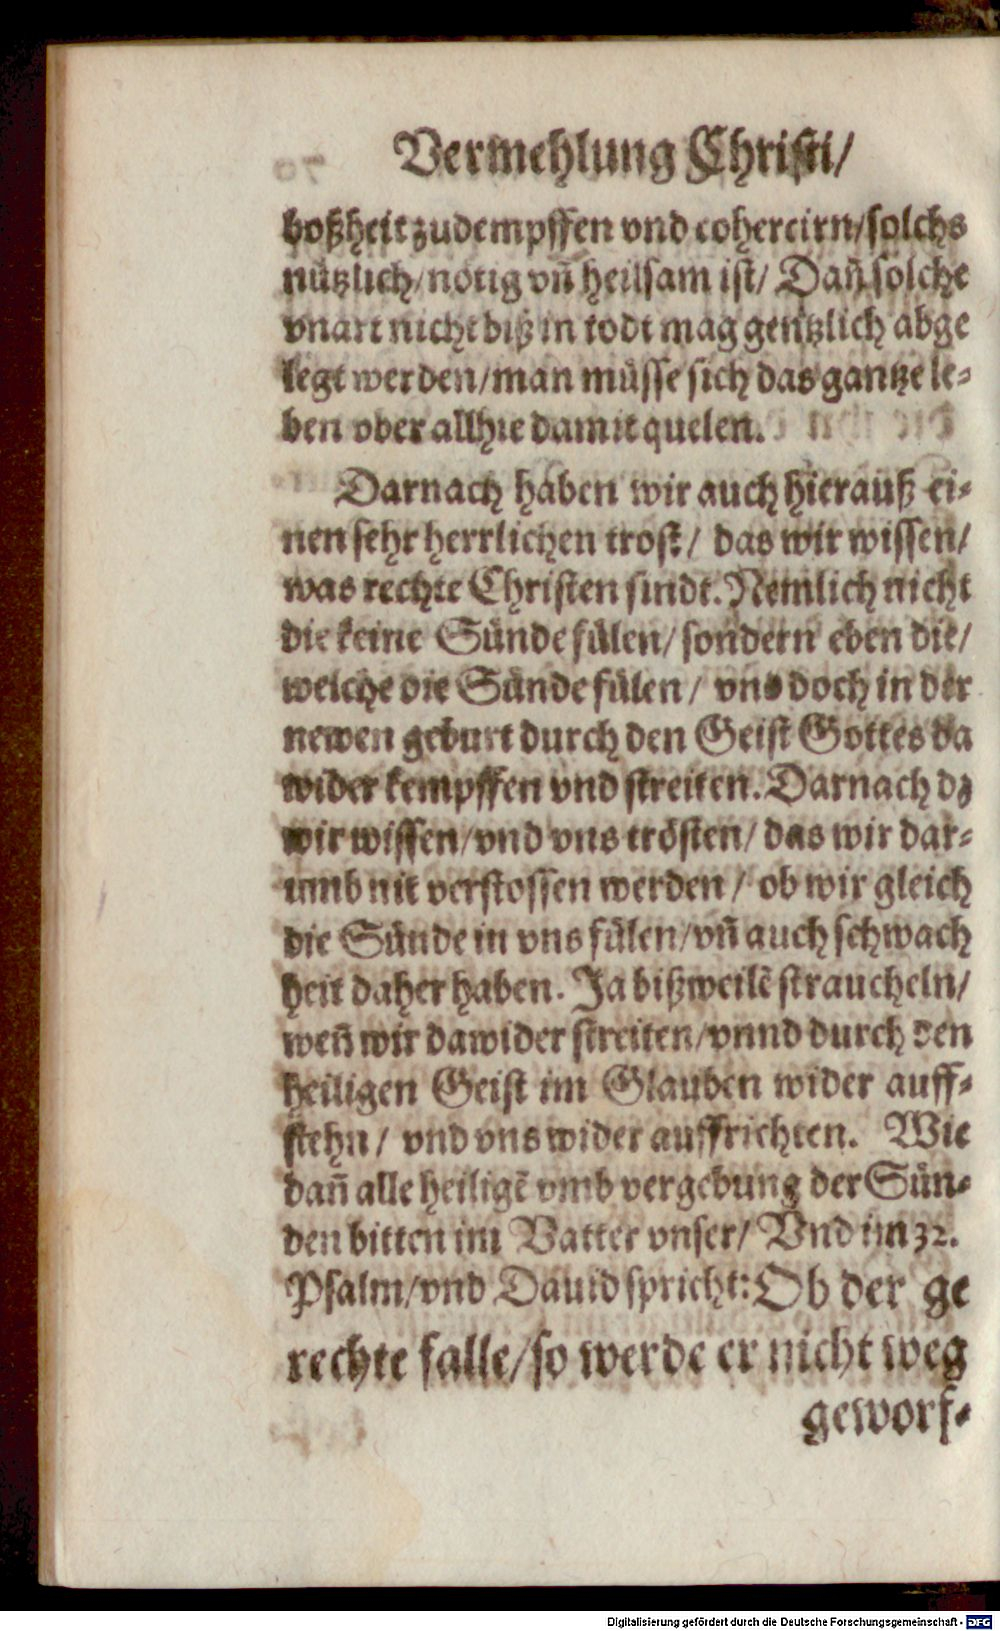 Vermehlung Christi/
boßheit zu dempffen vnd cohercirn/solchs
nützlich/nötig vñ heilsam ist/ Dañ solche
vnart nicht biß in todt mag gentzlich abge
legt werden/man müsse sich das gantze le-
ben vber allhie damit quelen.
Darnach haben wir auch hierauß ei-
nen sehr herrlichen trost/ das wir wissen/
was rechte Christen sindt. Nemlich nicht
die keine Sünde fülen/ sondern eben die/
welche die Sünde fülen/ vnd doch in der
newen geburt durch den Geist Gottes da
wider kempffen vnd streiten. Darnach dz
wir wissen/vnd vns trösten/ das wir dar-
umb nit verstossen werden/ ob wir gleich
die Sünde in vns fülen/vñ auch schwach
heit daher haben. Ja bißweilẽ straucheln/
weñ wir dawider streiten/vnnd durch den
heiligen Geist im Glauben wider auff-
stehn/ vnd vns wider auffrichten. Wie
dañ alle heiligẽ vmb vergebung der Sün-
den bitten im Vatter vnser/ Vnd im 32.
Psalm/vnd Dauid spricht: Ob der ge
rechte falle/so werde er nicht weg
geworf-
Digitalisierung gefördert durch die Deutsche Forschungsgemeinschaft - DFG